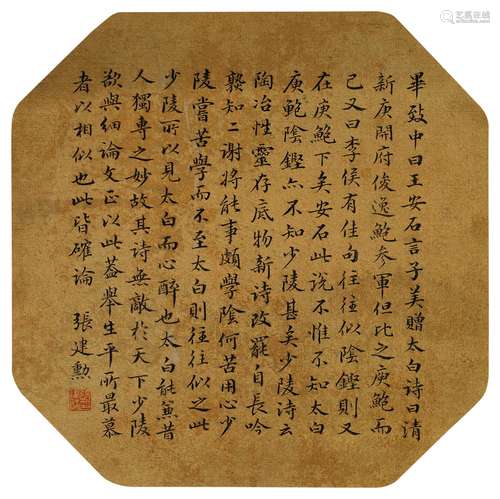 畢致中曰王安石言子美贈太白詩曰清
新庾開府俊逸鮑參軍但比之庾鮑而
已又曰李侯有佳句往往似陰鏗則又
在庾鮑下矣安石此說不惟不知太白
庾鮑陰鏗亦不知少陵甚矣少陵詩云
陶冶性靈存底物新詩改罷自長吟
孰知二謝將能事頗學陰何苦用心少
陵嘗苦學而不至太白則往往似之此
少陵所以見太白而心醉也太白能兼昔
人獨專之妙故其詩無敵於天下少陵
欲與細論文正以此蓋舉生平所最慕
者以相似也此皆確論 張建勳